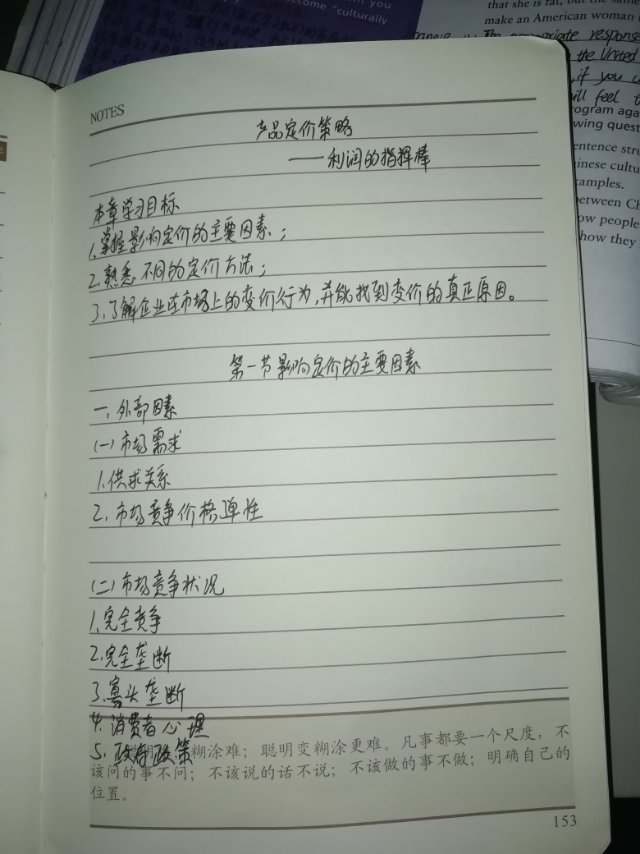 become "culturally
that she is fat, but the same
make an American woman
The appropriate response
the United
if you
will feel
program aga
wing quest
entence stru
inese cultu
xamples.
between Ch
ow people
how they
NOTES
产品定价策略
——利润的指挥棒
本章学习目标
1.掌握影响定价的主要因素；
2.熟悉不同的定价方法；
3.了解企业在市场上的变价行为,并能找到变价的真正原因。
第一节影响定价的主要因素
一、外部因素
(一)市场需求
1.供求关系
2.市场竞争价格弹性
(二)市场竞争状况
1.完全竞争
2.完全垄断
3.寡头垄断
4.消费者心理
5.政府政策
糊涂难；聪明变糊涂更难。凡事都要一个尺度，不
该问的事不问；不该说的话不说；不该做的事不做；明确自己的
位置。
153